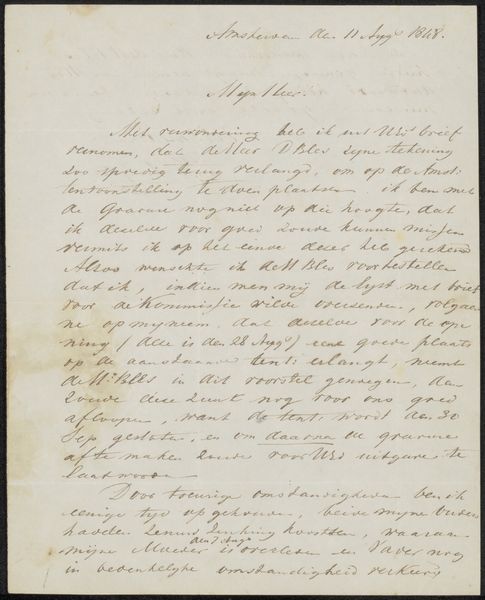 Amsterdam den 11 Augs 1848.
Mijn Heer.
Met verwondering heb ik uit UEds brief
vernomen, dat de Heer D Bles zijne tekening
zoo spoedig terug verlangd, om op de Amst:
tentoonstelling te doen plaatsen. ik ben met
de Gravure nog niet op die hoogte, dat
ik dezelve voor goed zoude kunnen missen
vermits ik op het einde dezer heb gerekend
Alzoo wenschte ik de Hr Bles voor te stellen
dat ik, indien men mij de lyst met brief
voor de Kommissie wilde toezenden,
op my neem, dat dezelve voor de ope
ning (die is den 28 Augs) eene goede plaats
op de aanstaande tent: erlangt, neemt
de Hr Bles in dit voorstel genoegen, dan
zoude deze zunt nog voor ons goed
afloopen, want de tent: wordt den 30
Sep gesloten, en om daarna de gravure
af te maken zoude voor UEds uitgave te
laat worden
Door treurige omstandigheden ben ik
eenige tyd opgehouden, beide mijne ouders
hadden zenuwzinking koortsen, waaraan
den 7 Augs
mijne Moeder is overleden en Vader nog
in bedenkelyke omstandigheid verkeerd